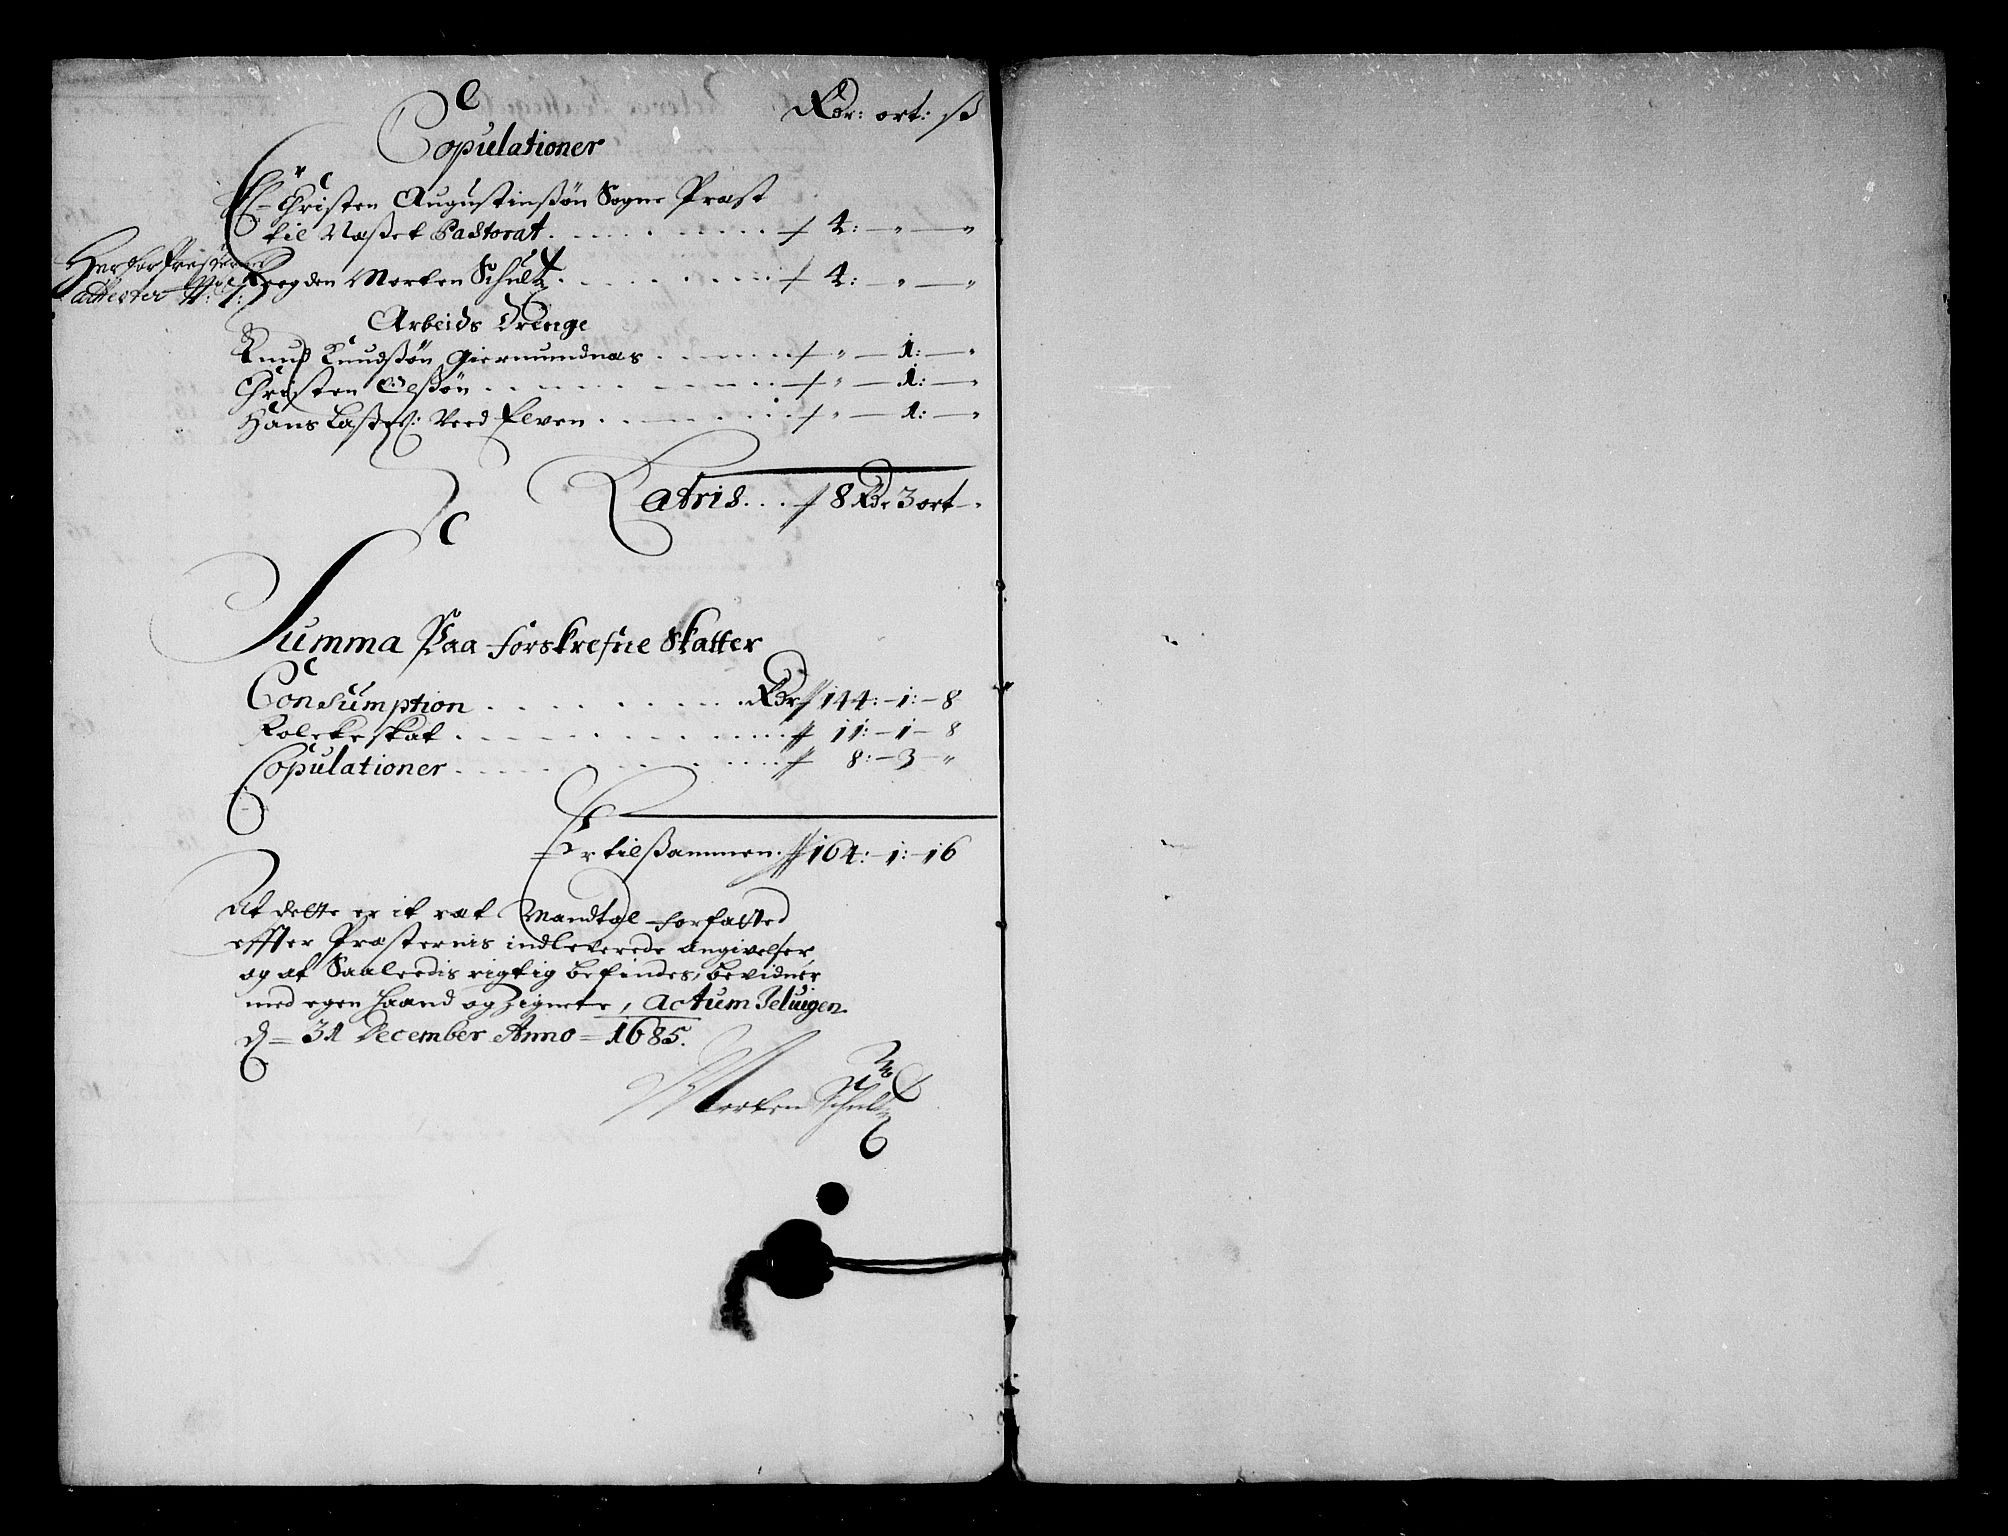 Rdr: ort: ß
Copulationer
Hr Christen Augustinßøn Sogne Præst
til Næßet Pastorat . . . 4: — " — "
Her for Presternes
attester No: 7:
Fogden Morten Schultz . . . 4: — " — "
Arbeids Drenge
Knud Knudßøn Giermundnæs . . . " — 1: — "
Christen Olßøn . . . " — 1: — "
Hans Laßes: Ved Elven . . . " — 1: — "
Latris . . . 8 Rdr 3 ort - "
Summa Paa forskrefne Skatter
Consumption . . . Rdr 144: - 1: - 8
Folcke skat . . . 11: - 1 - 8
Copulationer . . . 8: - 3 - "
Er tilßammen . 164: - 1: - 16
At dette er it ræt Mandtal forfatted
effter Præsternis indleverede angivelser,
og at Saaleedis rigtig befindes, bevidner
med egen haand og Zignete, Actum
d = 31 December Anno = 1685.
Morten Schultz